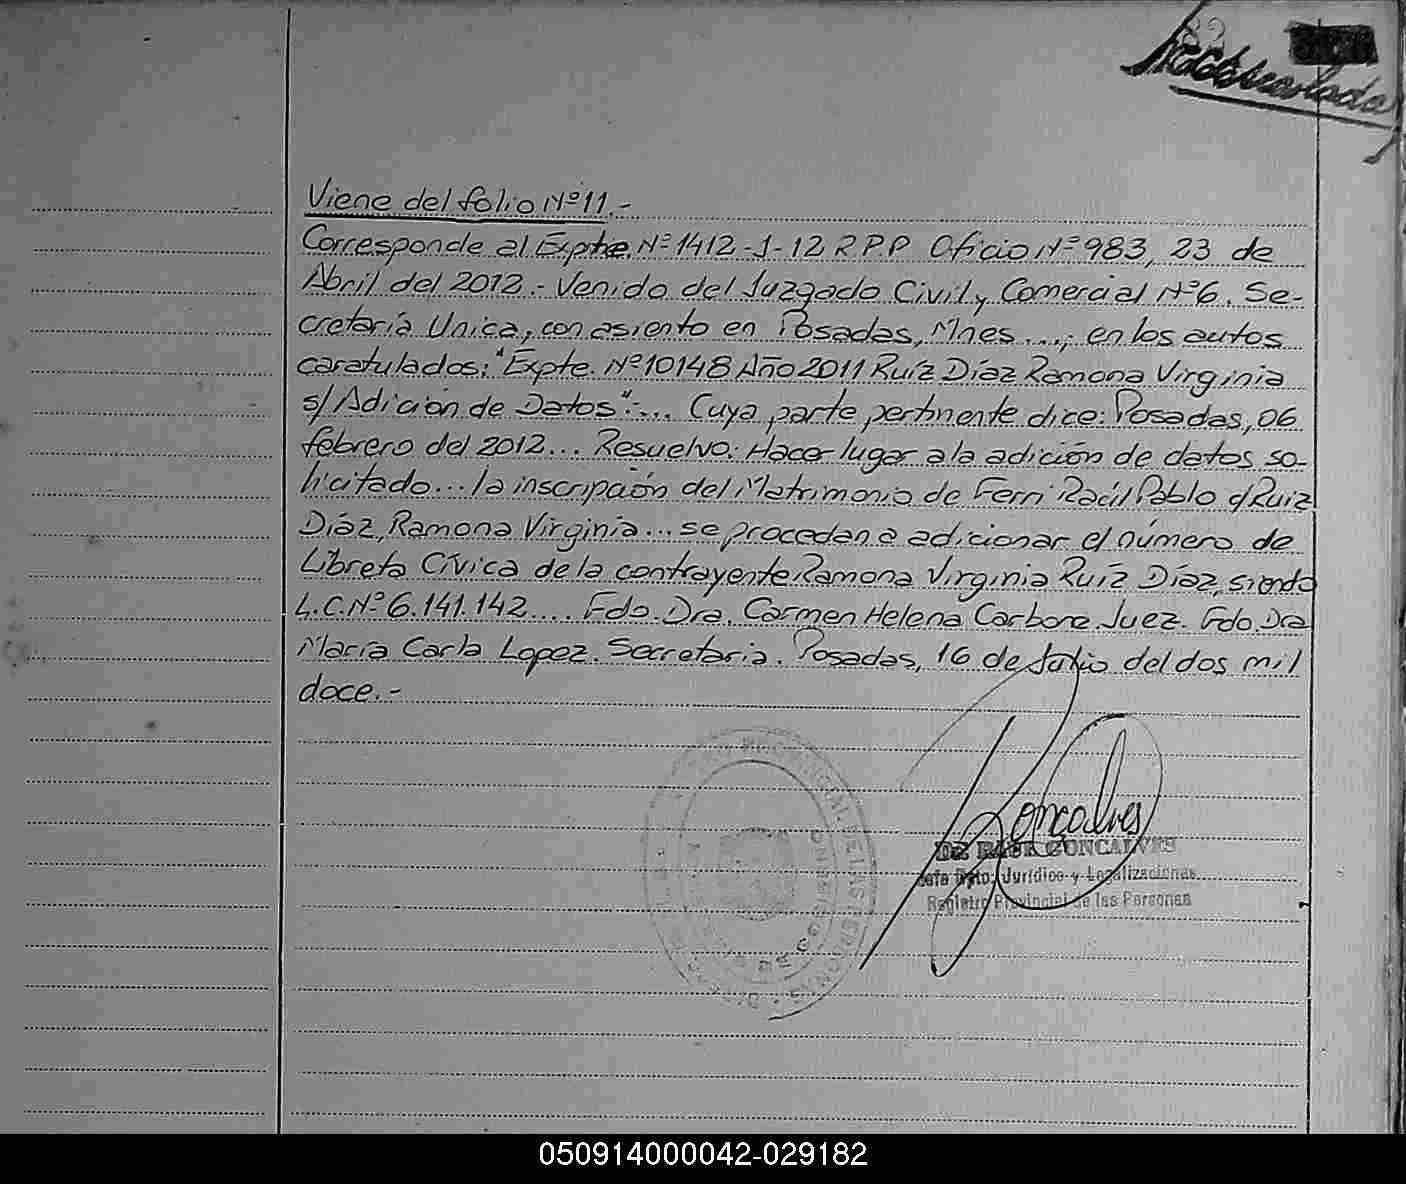 Viene del folio Nº 11.-
Corresponde al Expte. Nº 1412-J-12 R.P.P Oficio Nº 983, 23 de
Abril del 2012.- Venido del Juzgado Civil y Comercial Nº 6. Se-
cretaría Unica, con asiento en Posadas, Mnes...., en los autos
caratulados: "Expte. Nº 10148 Año 2011 Ruíz Díaz Ramona Virginia
s/ Adición de Datos":... Cuya parte pertinente dice: Posadas, 06
febrero del 2012... Resuelvo: Hacer lugar a la adición de datos so-
licitado... la inscripción del Matrimonio de Ferri Raúl Pablo c/ Ruiz
Díaz, Ramona Virginia... se procedan a adicionar el número de
Libreta Cívica de la contrayente Ramona Virginia Ruíz Díaz, siendo
L.C. Nº 6.141.142.... Fdo. Dra. Carmen Helena Carbone. Juez. Fdo. Dra
María Carla Lopez. Secretaria. Posadas, 16 de Julio del dos mil
doce.-
Goncalves
GONCALVES
Jefe Dpto. Jurídico y Legalizaciones
Registro Provincial de las Personas
PROVINCIAL DE LAS PERSONAS
050914000042-029182